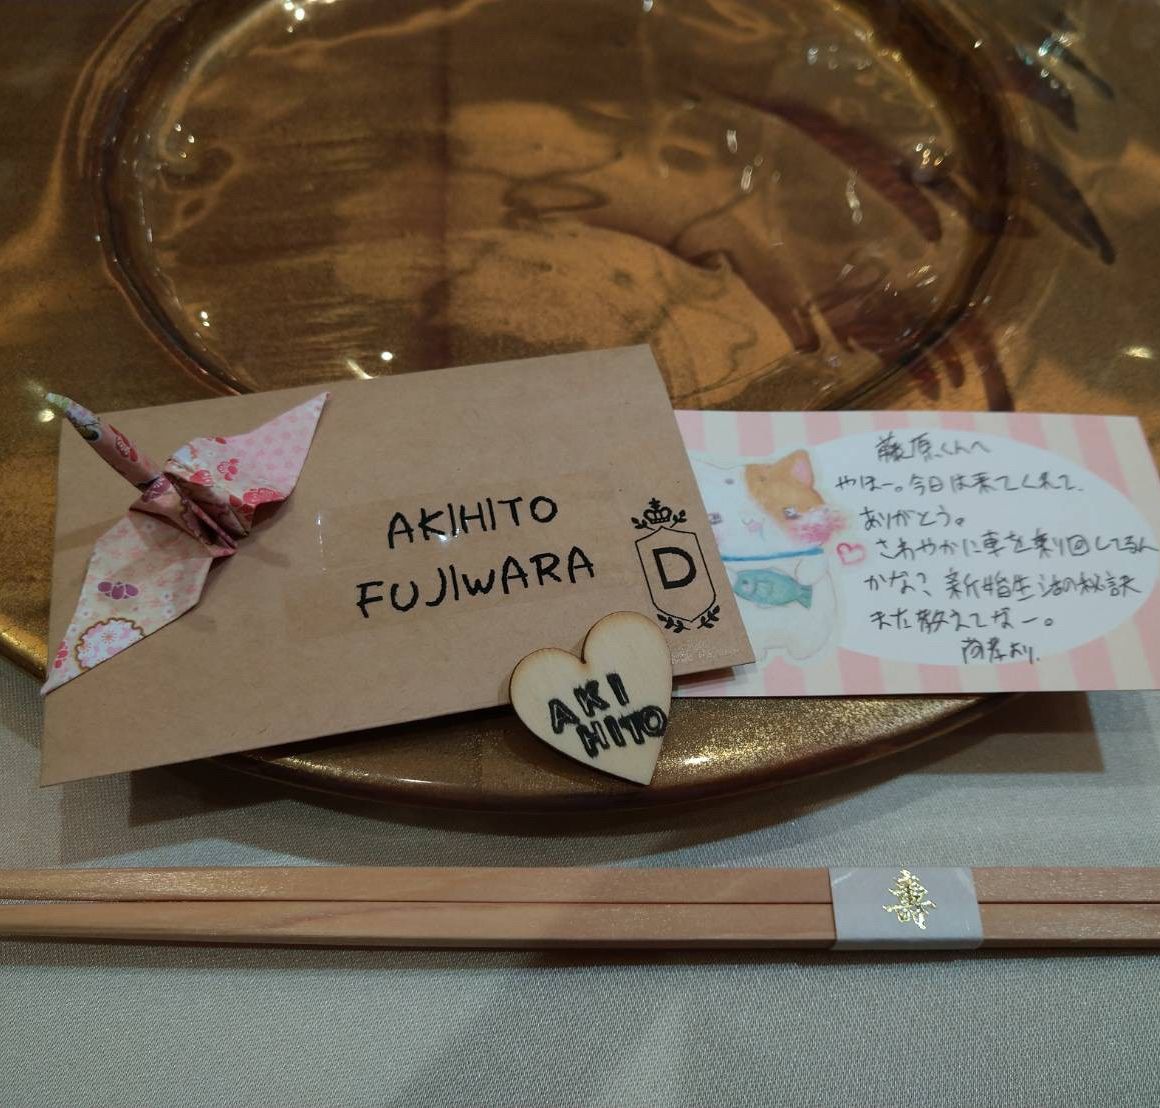 AKIHITO
FUJIWARA
D
AKI
HITO
藤原くんへ
やほー。今日は来てくれて、
ありがとう。
さわやかに車を乗り回してるん
かな？新婚生活の秘訣
また教えてなー。
より.
寿